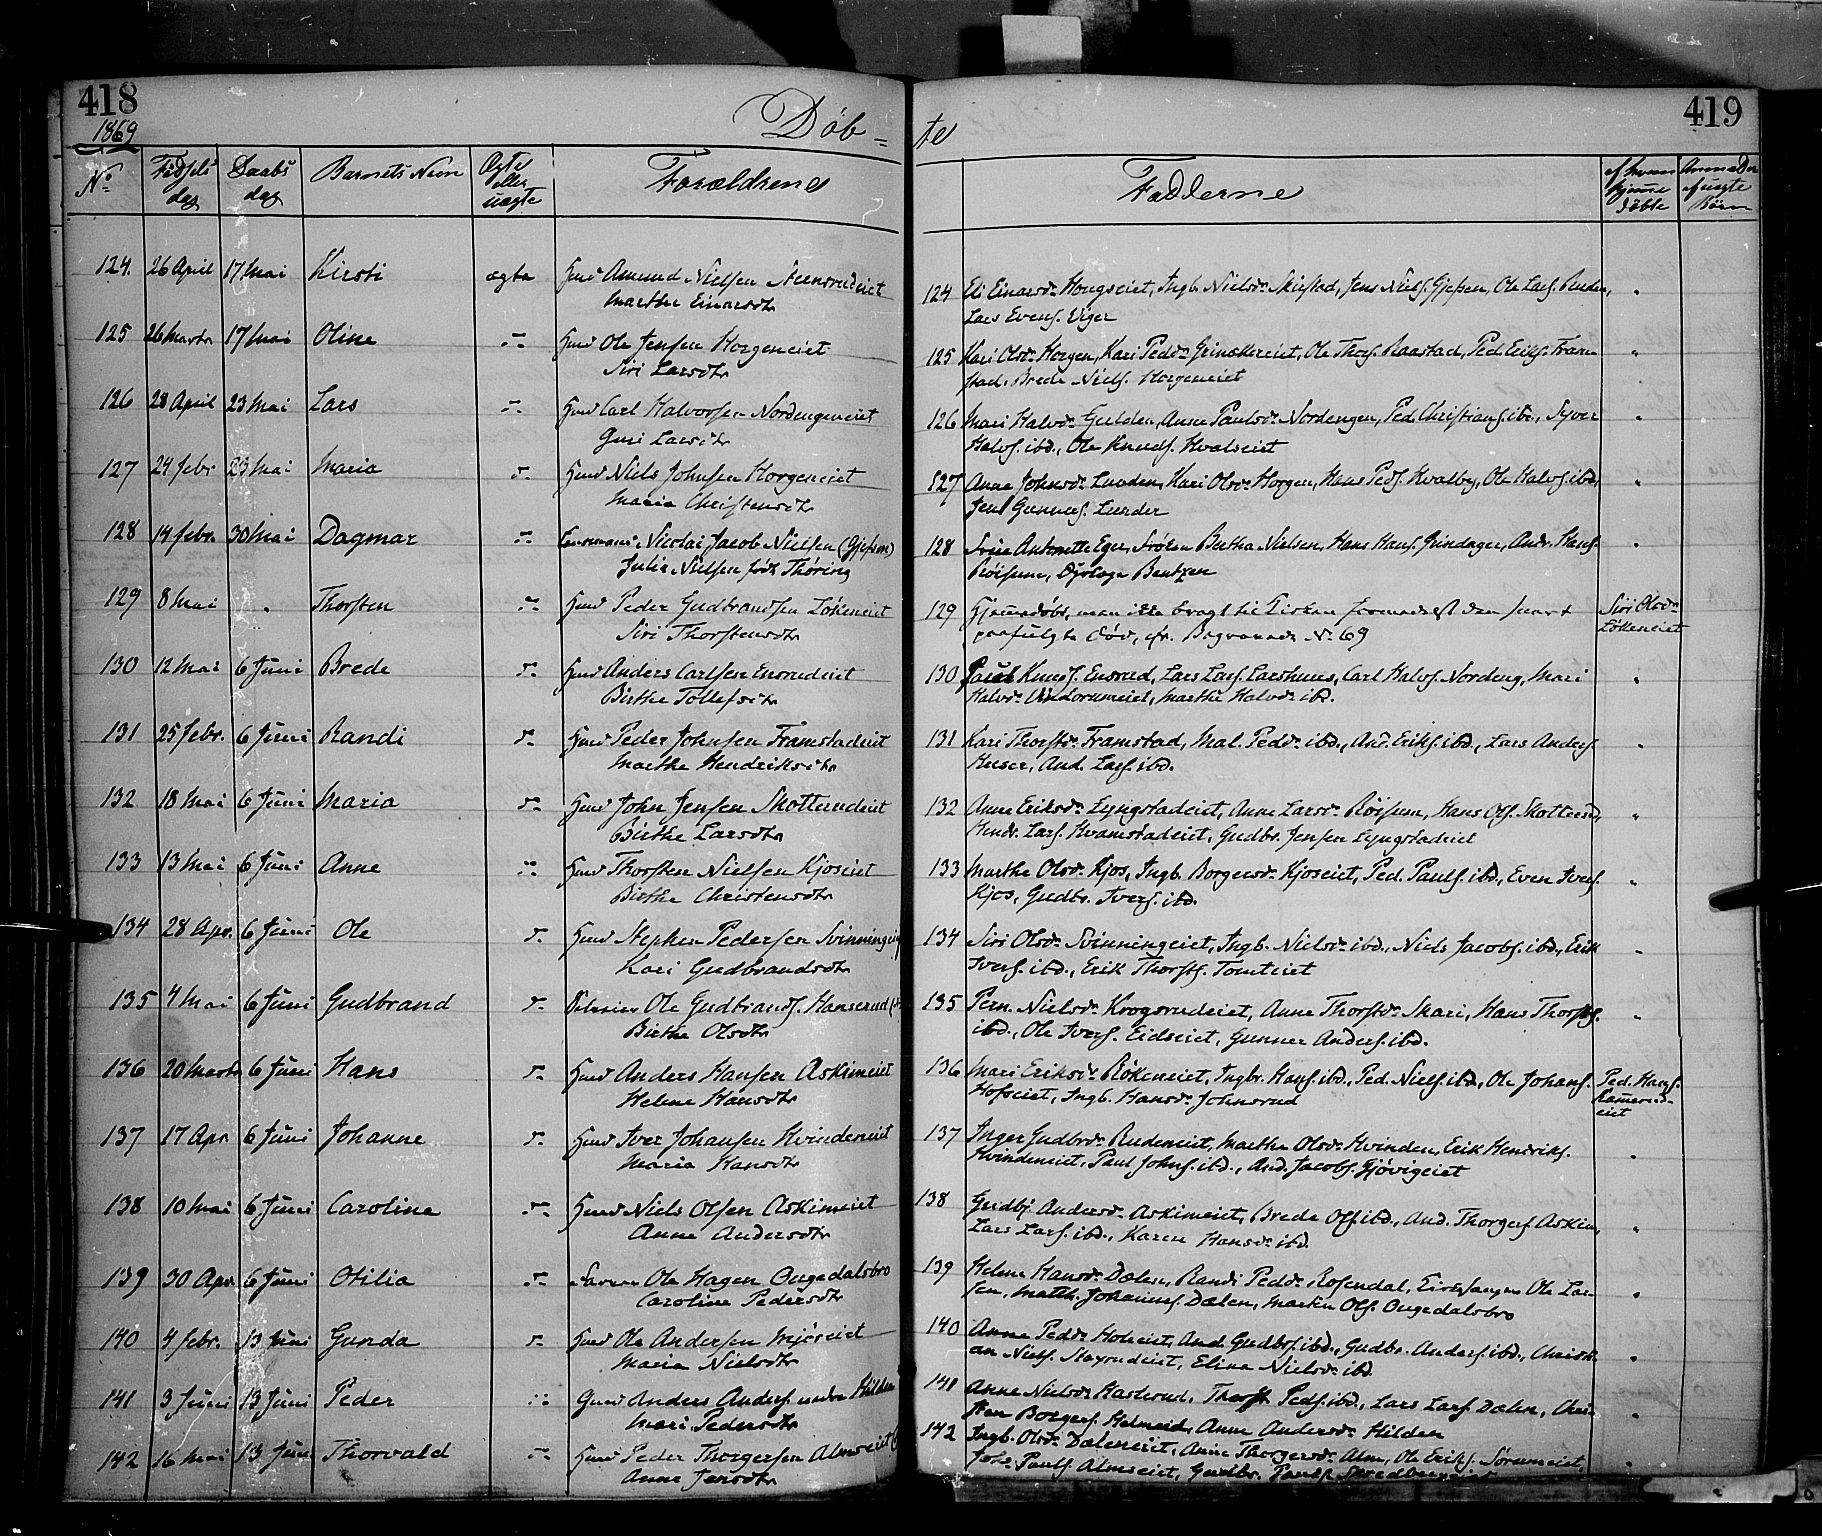 418
1869
Døb-
No
Fødsels dag
Daabs dag
Barnets Navn
Ægte eller uægte
Forældrene
124. 26 April 17 Mai Kirsti ægte Huusm Amund Nielsen Steensrudeiet
Marthe Einarsdtr
125 26 Marts 17 Mai Oline Huusm Ole Jensen Horgeneiet
Siri Larsdtr
126 28 April 23 Mai Lars Huusm Carl Halvorsen Nordengeneiet
Guri Larsdtr
127 24 febr 23 Mai Maria Huusm Niels Johnsen Horgeneiet
Maria Christensdtr
128 14 febr. 30 Mai Dagmar Nicolai Jacob Nielsen (Gjefsen)
Julie Nielsen født Thøring
129 8 Mai " Thorsten Huusm Peder Gudbrandsen Løkeneiet
Siri Thorstensdtr
130 12 Mai 6 Juni Brede Huusm Anders Carlsen Ensrudeiet
Birthe Tollefsdtr
131 25 febr. 6 Juni Randi Huusm Peder Johnsen Framstadeiet
Marthe Hendriksdtr
132 18 Mai 6 Juni Maria Huusm John Jensen Skotterudeiet
Birthe Larsdtr
133 13 Mai 6 Juni Anne Huusm Thorsten Nielsen Kjoseiet
Birthe Christensdtr
134 28 Apr. 6 Juni Ole Huusm Stephen Pedersen Svinningeiet
Kari Gudbrandsdtr
135 4 Mai 6 Juni Gudbrand Ole Gudbrands. Hanserud
Birthe Olsdtr
136 20 Marts 6 Juni Hans Huusm Anders Hansen Askimeiet
Helene Hansdtr
137 17 Apr 6 Juni Johanne Huusm Iver Johansen Hvindeneiet
Maria Hansdtr
138 10 Mai 6 Juni Caroline Huusm Niels Olsen Askimeiet
Anne Andersdtr
139 30 Apr. 6 Juni Otilia Ole Hagen Ougedalsbro
Caroline Pedersdtr
140 4 febr. 13 Juni Gunda Huusm Ole Andersen Mjøseiet
Maria Nielsdtr
141 3 Juni 13 Juni Peder Gmd Anders Anders. nedre Hilden
Mari Pedersdtr
142 16 Mai 13 Juni Thorvald Huusm Peder Thorgersen Almseiet
Anne Jensdtr
419
te
Fadderne
af hvem hjemmedøbte
Anm af uægte Børn
124 Eli Einarsdr Hougseiet, Ingb. Nielsdr Skiestad, Jens Niels. Gjefsen, Ole Lars. Ruden,
Lars Evens. Viger
125 Kari Olsdr Horgen, Kari Pedsdr, Ole Thors. Raastad, Ped. Eriks. Fram-
stad, Brede Niels. Horgeneiet
126 Mari Halvdr Gulden, Anne Paulsdr Nordengen, Ped. Christians. ibd., Syver
Halvs. ibd., Ole Knuds. Hvalseiet
127 Anne Johnsdr Lunden, Kari Olsdr Horgen, Hans Peds. Hvalby, Ole Halvs. ibd.,
Jens Gunners. Lunder
128 Antonette Eger, Frøken Bertha Nielsen, Hans Hans. Grindager, Andr. Hans.
Røisum, Bentzen
129 Hjemmedøbt, men ikke bragt til Kirken formedelst den snart
paafulgte død, cfr. Begravede No 69
Siri Olsdr
Løkeneiet
130 Paul Knuds. Ensrud, Lars Lars. Larshuus, Carl Halvs. Nordeng, Mari
Halvdr, Marthe Halvdr ibd.
131 Kari Thorstdr Framstad, Mal. Pedsdr ibd., And. Eriks. ibd., Lars Anders.
And. Lars. ibd.
132 Anne Eriksdr Lyngstadeiet, Anne Larsdr Røisum, Hans Ols. Skotterud,
Hendr. Lars. Kvamstadeiet, Gudbr. Jensen Lyngstadeiet
133 Marthe Olsdr Kjos, Ingb. Borgersdr Kjoseiet, Ped. Pauls. ibd., Even Ivers.
Kjos, Gudbr. Ivers. ibd.
134 Siri Olsdr Svinningeiet, Ingb. Nielsdr ibd., Niels Jacobs. ibd., Erik
Ivers. ibd., Erik Thorsts. Tomteiet
135 Pern. Nielsdr Krogsrudeiet, Anne Thorstdr Skari, Hans Thorsts.
ibd., Ole Ivers. Eidseiet, Gunner Anders. ibd.
136 Mari Eriksdr Røkeneiet, Ingbr. Hans. ibd., Ped. Niels. ibd., Ole Johans.
Hofseiet, Ingb. Hansdr Johnsrud
Ped. Hans.
Ramerud-
eiet
137 Inger Gudbrdr Rudeneiet, Marthe Olsdr Hvinden, Erik Hendriks.
Hvindeneiet, Paul Johns. ibd., And. Jacobs. Gjøvigeiet
138 Gudbj. Andersdr Askimeiet, Brede Ols. ibd., And. Thorgers. Askim,
Lars Lars. ibd., Karen Hansdr ibd.
139 Helene Hansdr Dælen, Randi Pedsdr Rosendal, Kirkesanger Ole Lar-
sen, Matth. Johannes. Dælen, Martin Ols. Ougedalsbro
140 Anne Pedsdr Holseiet, And. Gudbrs. ibd., Gudbr. Anders. ibd., Christi-
an Niels., Elina Nielsdr ibd.
141 Anne Nielsdr Haslerud, Thorst. Peds. ibd., Lars Lars. Dælen, Chri-
sten Borgers. Helmeid, Anne Andersdr Hilden
142 Ingb. Olsdr Dæleneiet, Anne Thorgersdr Alm, Ole Eriks. Sørumeiet,
Johs. Pauls. Almseiet, Gudbr. Pauls.